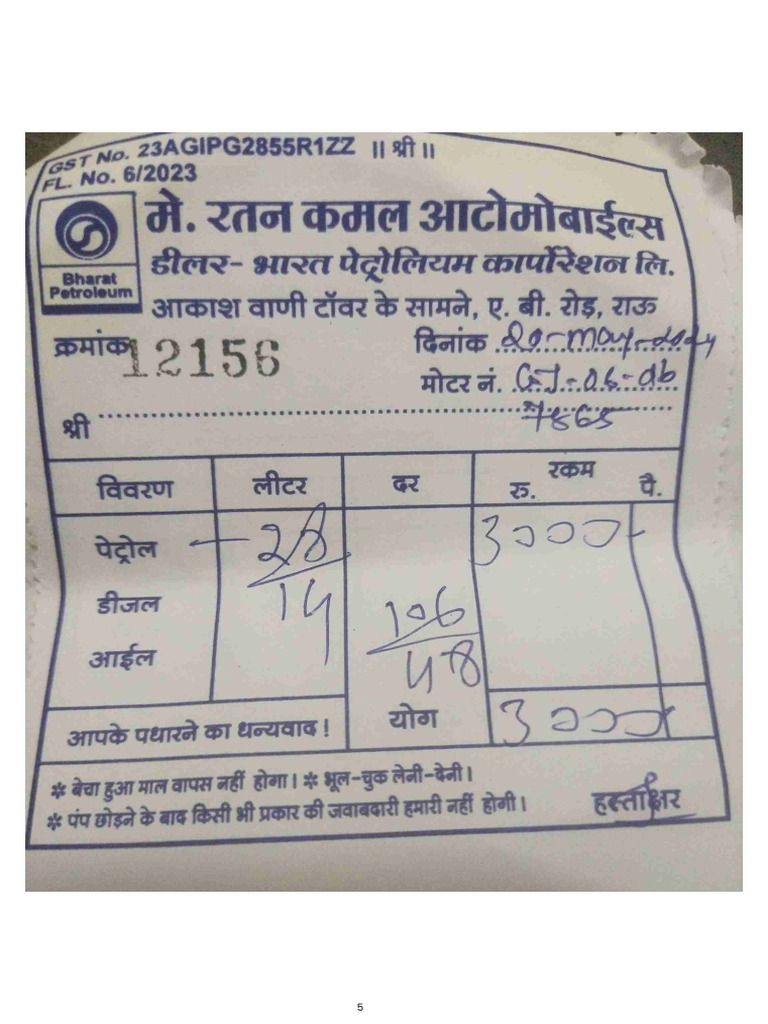 GST No. 23AGIPG2855R1ZZ ॥ श्री ॥
FL. No. 6/2023
मे. रतन कमल आटोमोबाईल्स
Bharat Petroleum
डीलर- भारत पेट्रोलियम कार्पोरेशन लि.
आकाश वाणी टॉवर के सामने, ए. बी. रोड़, राऊ
क्रमांक 12156 दिनांक 20-May-2024
मोटर नं. GJ-06-
श्री
विवरण लीटर दर रकम
रु. पै.
पेट्रोल - 28 3000/-
डीजल 14 106
आईल 48
आपके पधारने का धन्यवाद ! योग 3000
* बेचा हुआ माल वापस नहीं होगा। * भूल-चुक लेनी-देनी।
* पंप छोड़ने के बाद किसी भी प्रकार की जवाबदारी हमारी नहीं होगी। हस्ताक्षर
5